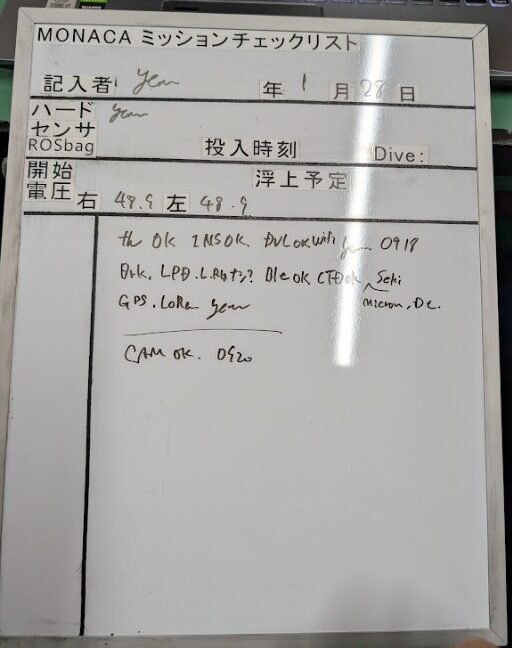 MONACA ミッションチェックリスト
記入者 yem 年 1 月 28 日
ハード yem
センサ
ROSbag 投入時刻 Dive:
開始 浮上予定
電圧 右 48.9 左 48.9
th OK INS OK DVL OK with yem 0918
LPD. Ble OK CTD OK Seki
GPS. LoRa yem micron, DC.
CAM OK. 0920